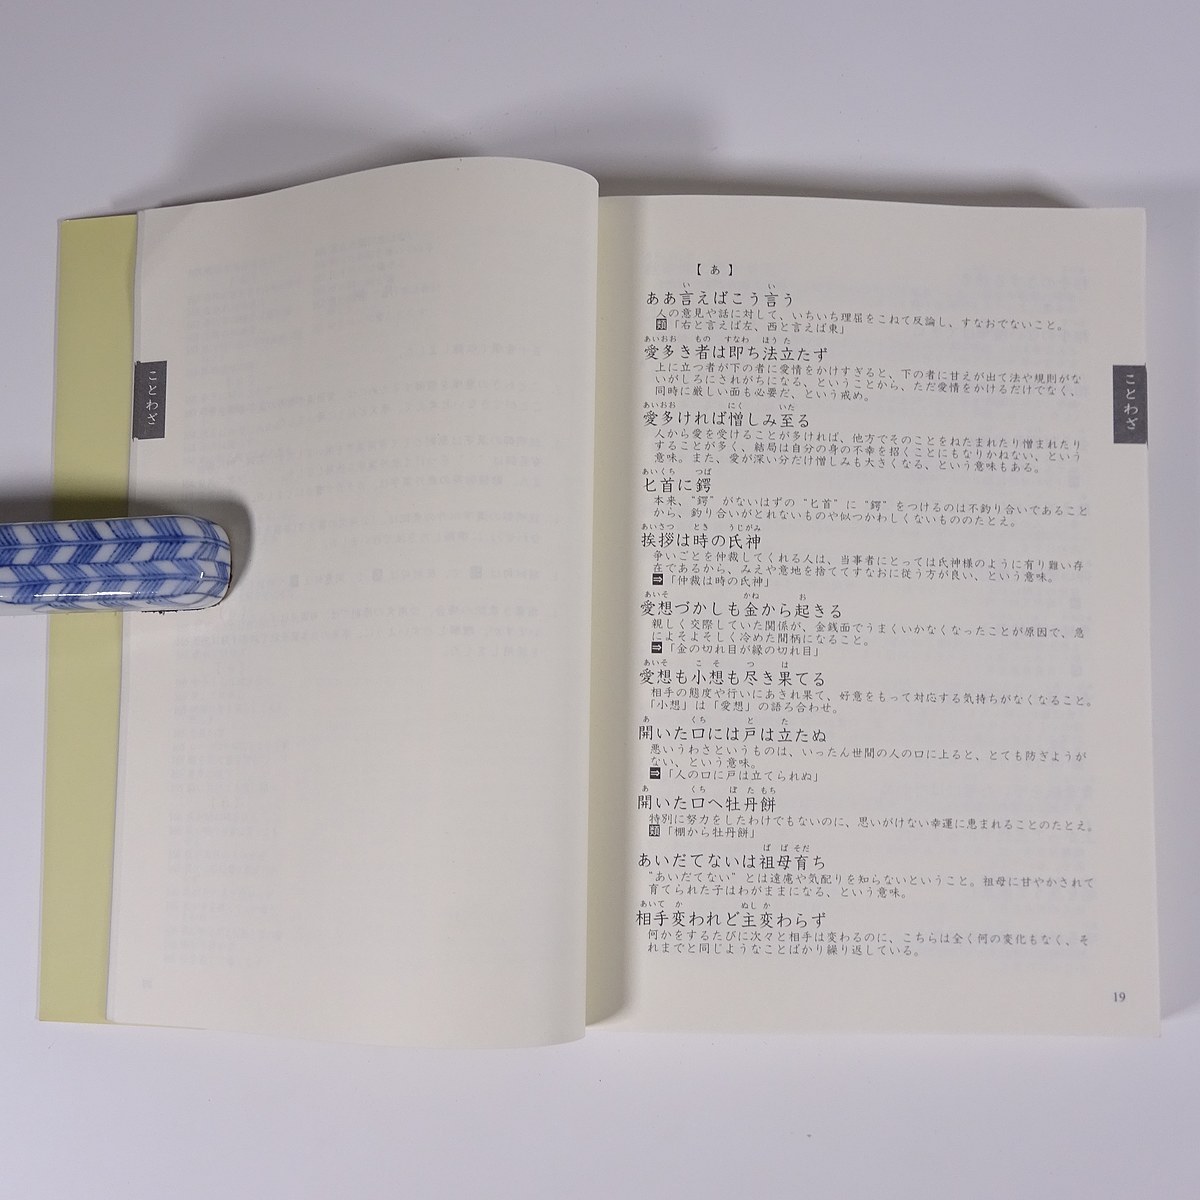 ことわざ
【あ】
ああ言えばこう言う
人の意見や話に対して、いちいち理屈をこねて反論し、すなおでないこと。
類「右と言えば左、西と言えば東」
愛多き者は即ち法立たず
上に立つ者が下の者に愛情をかけすぎると、下の者に甘えが出て法や規則がな
いがしろにされがちになる、ということから、ただ愛情をかけるだけでなく、
同時に厳しい面も必要だ、という戒め。
愛多ければ憎しみ至る
人から愛を受けることが多ければ、他方でそのことをねたまれたり憎まれたり
することが多く、結局は自分の身の不幸を招くことにもなりかねない、という
意味。また、愛が深い分だけ憎しみも大きくなる、という意味もある。
匕首に鍔
本来、“鍔”がないはずの“匕首”に“鍔”をつけるのは不釣り合いであること
から、釣り合いがとれないものや似つかわしくないもののたとえ。
挨拶は時の氏神
争いごとを仲裁してくれる人は、当事者にとっては氏神様のように有り難い存
在であるから、みえや意地を捨ててすなおに従う方が良い、という意味。
⇒「仲裁は時の氏神」
愛想づかしも金から起きる
親しく交際していた関係が、金銭面でうまくいかなくなったことが原因で、急
によそよそしく冷めた間柄になること。
⇒「金の切れ目が縁の切れ目」
愛想も小想も尽き果てる
相手の態度や行いにあきれ果て、好意をもって対応する気持ちがなくなること。
「小想」は「愛想」の語ろ合わせ。
開いた口には戸は立たぬ
悪いうわさというものは、いったん世間の人の口に上ると、とても防ぎようが
ない、という意味。
⇒「人の口に戸は立てられぬ」
開いた口へ牡丹餅
特別に努力をしたわけでもないのに、思いがけない幸運に恵まれることのたとえ。
類「棚から牡丹餅」
あいだてないは祖母育ち
“あいだてない”とは遠慮や気配りを知らないということ。祖母に甘やかされて
育てられた子はわがままになる、という意味。
相手変われど主変わらず
何かをするたびに次々と相手は変わるのに、こちらは全く何の変化もなく、そ
れまでと同じようなことばかり繰り返している。
ことわざ
19